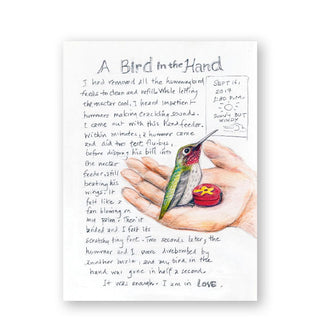 A Bird in the Hand
I had removed all the hummingbird
feeders to clean and refill. While letting
the nectar cool, I heard impatient
hummers making crackling sounds.
I came out with this hand feeder.
Within minutes, a hummer came
and did two test fly-bys,
before dipping his bill into
the nectar
feeder, still
beating his
wings. It
felt like a
fan blowing on
my palm. Then it
landed and I felt its
scratchy tiny feet. Two seconds later, the
hummer and I were divebombed by
another male, and my bird in the
hand was gone in half a second.
It was enough. I am in LOVE.
SEPT 16,
2019
SUNNY BUT
WINDY